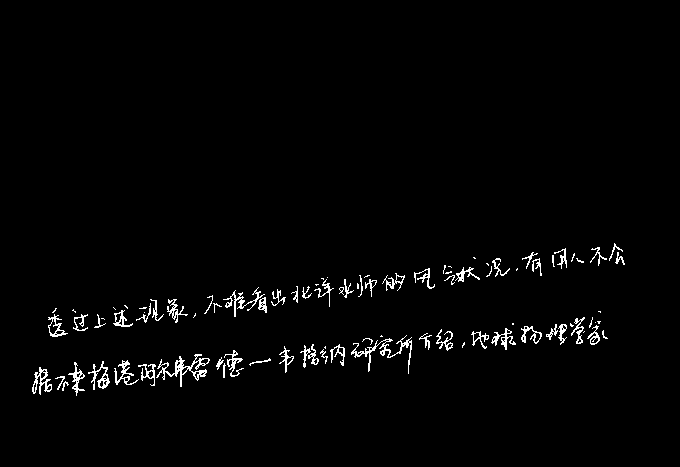 透过上述现象，不难看出北洋水师的用人状况．有用人不公
据不来梅港阿尔弗雷德一韦格纳研究所介绍，地球物理学家